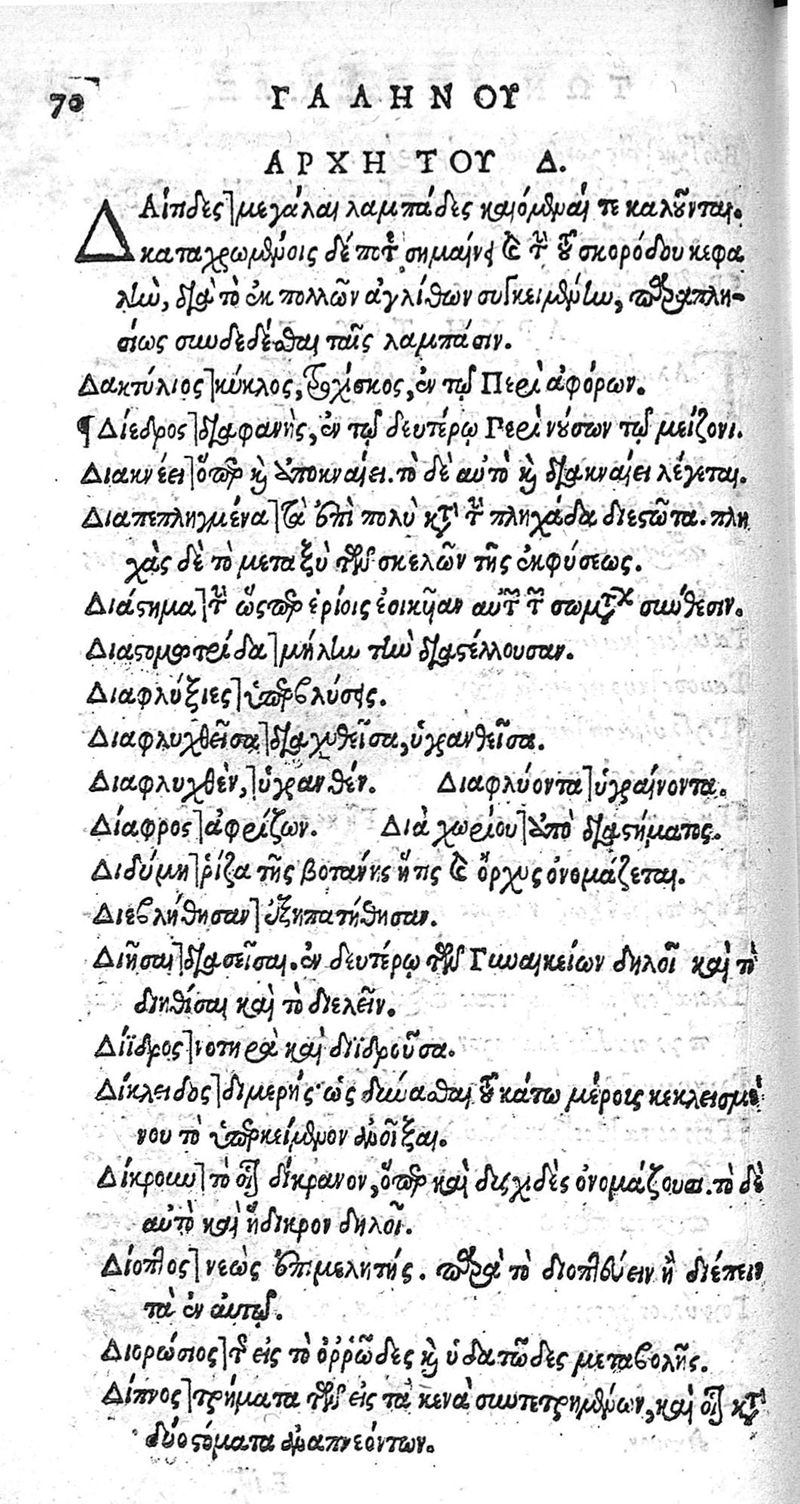 70 ΓΑΛΗΝΟΥ
ΑΡΧΗ ΤΟΥ Δ.
ΔΑΐδες] μεγάλαι λαμπάδες καὶ τε καλοῦνται.
καταχρωμένοις δέ ποτε σημαίνει καὶ τὴν τοῦ σκορόδου κεφα
λὴν, διὰ τὸ ἐκ πολλῶν ἀγλίθων συγκειμένην, παραπλη-
σίως συνδεδέσθαι ταῖς λαμπάσιν.
Δακτύλιος] κύκλος, τροχίσκος, ἐν τῷ Περὶ ἀφόρων.
¶ Δίεδρος] διαφανὴς, ἐν τῷ δευτέρῳ Περὶ νούσων τῷ μείζονι.
Διακνέει] ὅπερ καὶ ἀποκναίει. τὸ δὲ αὐτὸ καὶ διακναίει λέγεται.
Διαπεπληγμένα] τὰ ἐπὶ πολὺ κατὰ τὴν πληχάδα διεστῶτα. πλη
χὰς δὲ τὸ μεταξὺ τῶν σκελῶν τῆς ἐκφύσεως.
Διάστημα] τὴν ὥσπερ ἐρίοις ἐοικυῖαν τοῦ σώματος σύνθεσιν.
Διαστομωτρίδα] μήλην τὴν διαστέλλουσαν.
Διαφλύξιες] ὑπερβλύσεις.
Διαφλυχθεῖσα] διαχυθεῖσα, ὑγρανθεῖσα.
Διαφλυχθὲν,] ὑγρανθέν. Διαφλύοντα] ὑγραίνοντα.
Δίαφρος] ἀφρίζων. Διὰ χωρίου] ἀπὸ διαστήματος.
Διδύμη] ῥίζα τῆς βοτάνης ἥτις καὶ ὄρχυς ὀνομάζεται.
Διεβλήθησαν] ἐξηπατήθησαν.
Διῆσαι] διασεῖσαι. ἐν δευτέρῳ τῶν Γυναικείων δηλοῖ καὶ τὸ
διηθίσαι καὶ τὸ διελεῖν.
Δίϊδρος] νοτηρὰ καὶ διϊδροῦσα.
Δίκλειδος] διμερής· ὡς δύνασθαι τοῦ κάτω μέροις κεκλεισμέ
νου τὸ ὑπερκείμενον ἀνοῖξαι.
Δίκρουν] τὸ οἷον δίκρανον, ὅπερ καὶ δισχιδὲς ὀνομάζουσι. τὸ δὲ
αὐτὸ καὶ ἤδικρον δηλοῖ.
Δίοπλος] νεὼς ἐπιμελητής. παρὰ τὸ διοπλεύειν ἢ διέπειν
τὰ ἐν αὐτῷ.
Διορώσιος] τῆς εἰς τὸ ὀῤῥῶδες καὶ ὑδατῶδες μεταβολῆς.
Δίπνος] τρήματα τῶν εἰς τὰ κενὰ συντετρημένων, καὶ οἷον κατὰ
δύο στόματα ἀναπνεόντων.